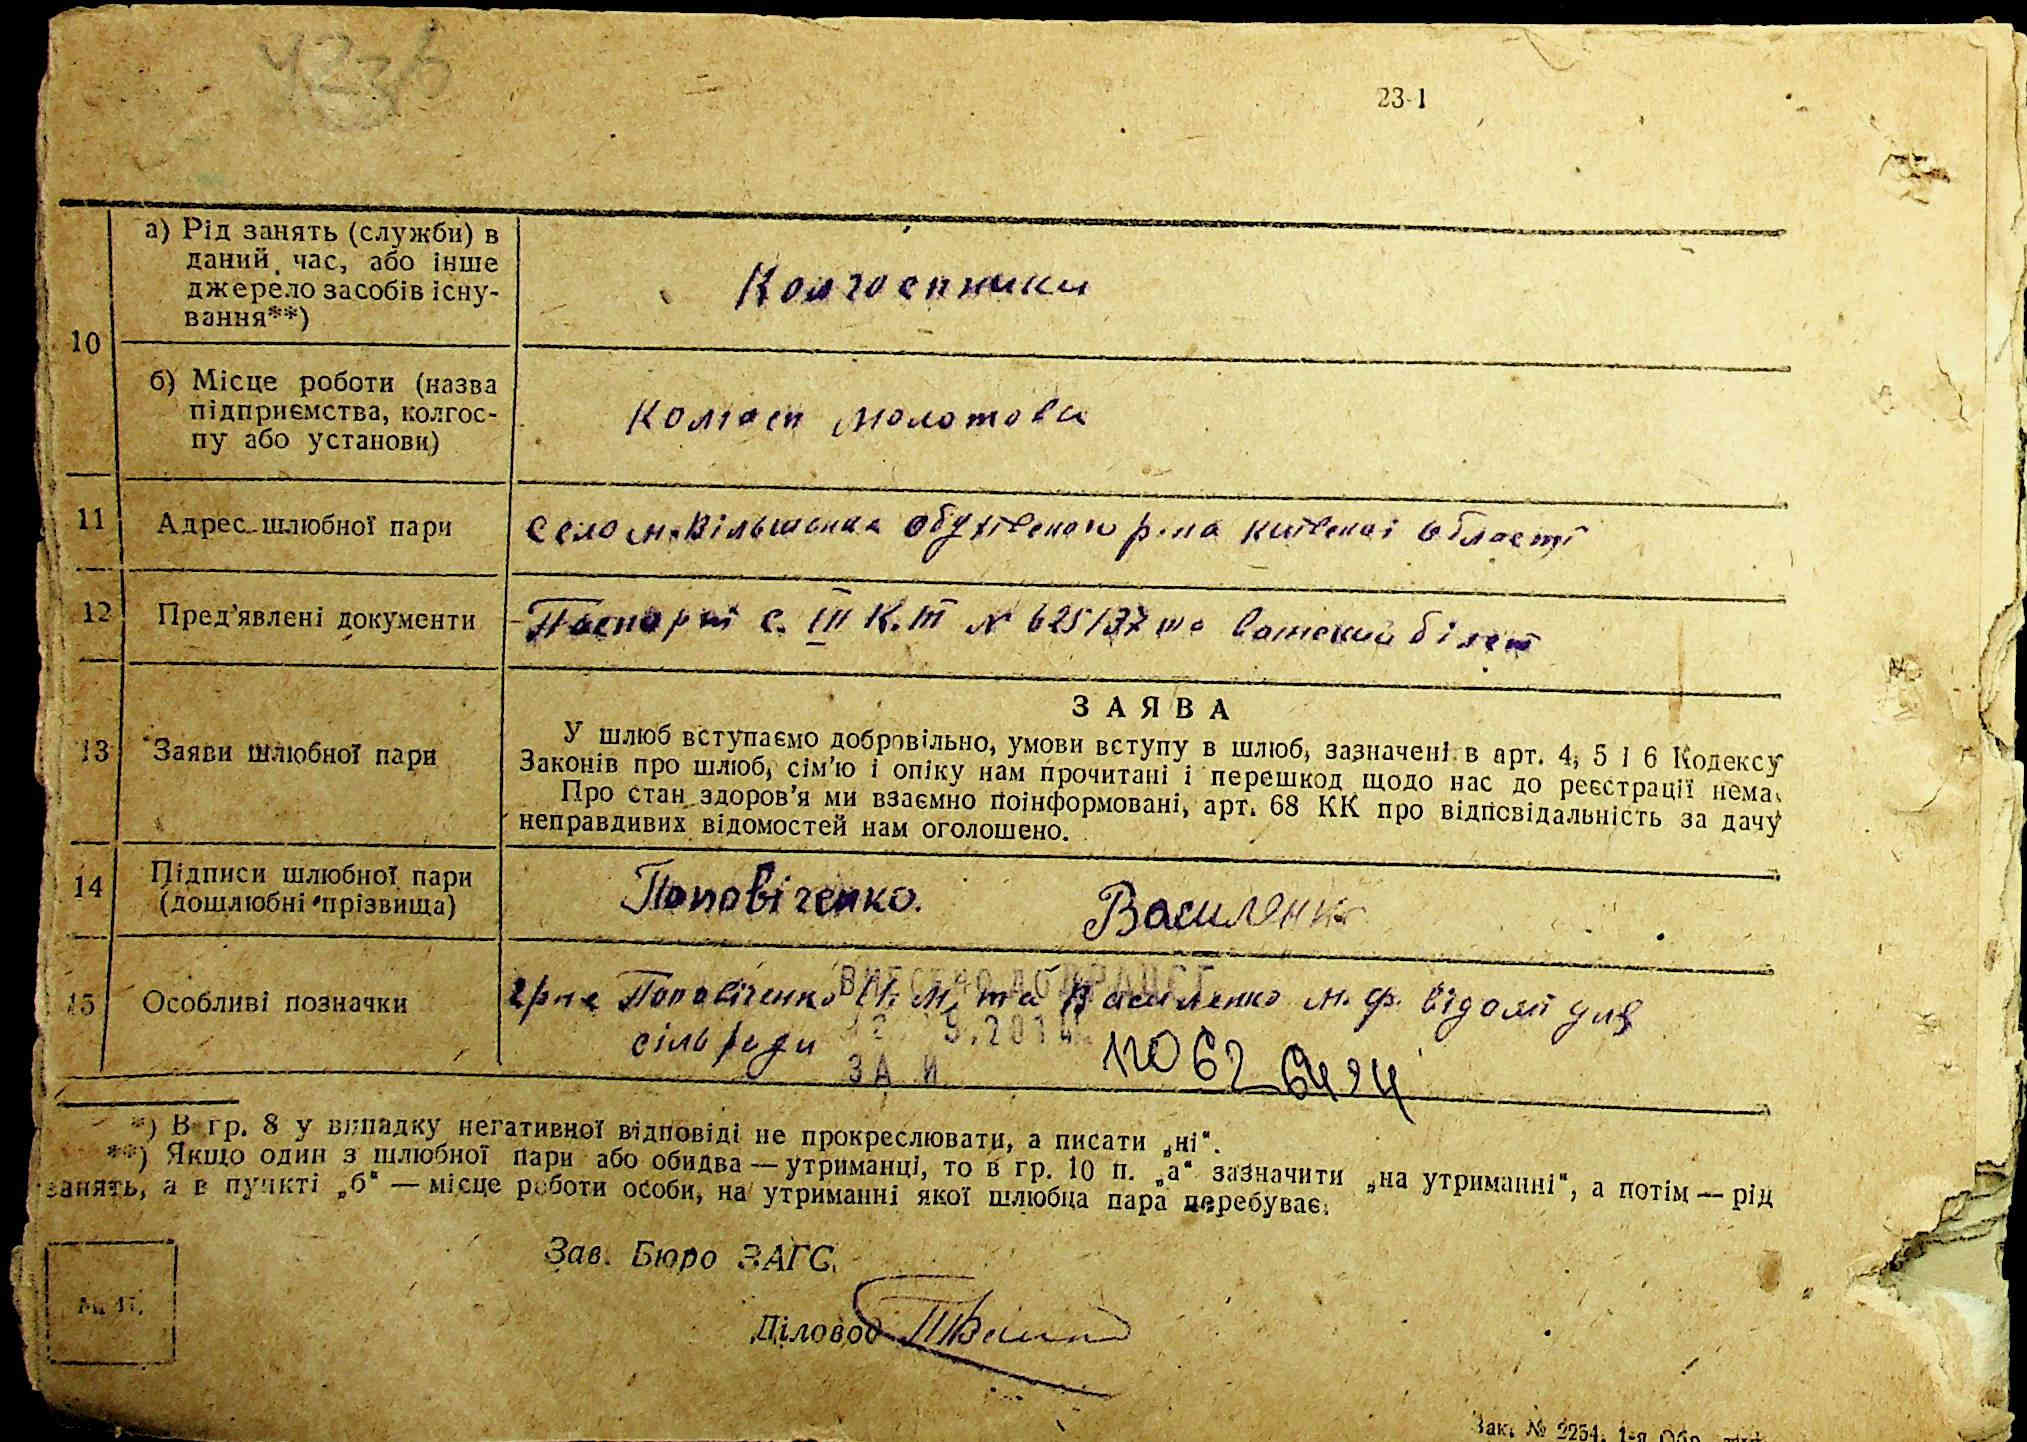 23-1
10
а) Рід занять (служби) в
даний час, або інше
джерело засобів існу-
вання**)
Колгоспники
б) Місце роботи (назва
підприємства, колгос-
пу або установи)
Колгосп Молотова
11
Адрес шлюбної пари
Село М. Вільшанка Обухівского р-на Київскоі області
12
Пред'явлені документи
Паспорт с. III К.Ш № 625137 та білет
13
Заяви шлюбної пари
ЗАЯВА
У шлюб вступаємо добровільно, умови вступу в шлюб, зазначені в арт. 4, 5 і 6 Кодексу
Законів про шлюб, сім'ю і опіку нам прочитані і перешкод щодо нас до реєстрації нема.
Про стан здоров'я ми взаємно поінформовані, арт. 68 КК про відповідальність за дачу
неправдивих відомостей нам оголошено.
14
Підписи шлюбної пари
(дошлюбні прізвища)
Поповіченко.
Василенко
15
Особливі позначки
гр-не Поповіченко та Василенко М. Ф. відомі для
сільради
ВНЕСЕНО ДО ДРАЦСГ
12 9.2014
ЗА №
*) В гр. 8 у випадку негативної відповіді не прокреслювати, а писати „ні“.
**) Якщо один з шлюбної пари або обидва — утриманці, то в гр. 10 п. „а“ зазначити „на утриманні“, а потім — рід
занять, а в пункті „б“ — місце роботи особи, на утриманні якої шлюбна пара перебуває.
Зав. Бюро ЗАГС.
М. П.
Діловод
Зак. № 2254. 1-я Обр.